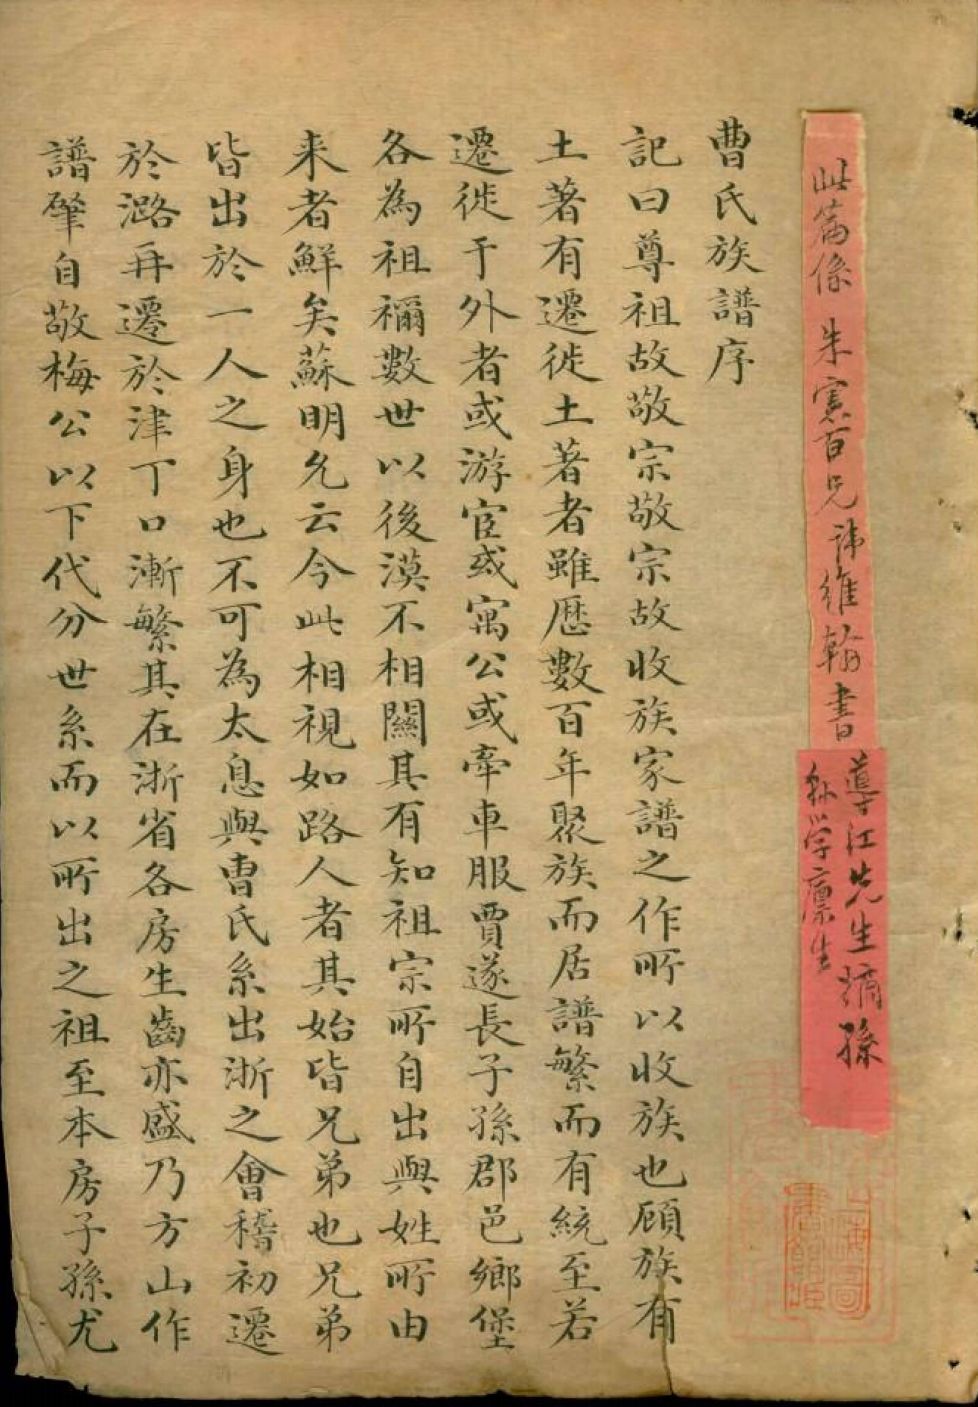 此篇係 朱寔百兄諱維翰書
導江先生嫡孫
縣学廩生
曹氏族譜序
記曰尊祖故敬宗敬宗故收族家譜之作所以收族也顧族有
土著有遷徙土著者雖歷數百年聚族而居譜繁而有統至若
遷徙于外者或游宦或寓公或牽車服賈遂長子孫郡邑鄉堡
各為祖禰數世以後漠不相關其有知祖宗所自出與姓所由
来者鮮矣蘇明允云今此相視如路人者其始皆兄弟也兄弟
皆出於一人之身也不可為太息與曹氏系出浙之會稽初遷
於潞再遷於津丁口漸繁其在浙省各房生齒亦盛乃方山作
譜肇自敬梅公以下代分世系而以所出之祖至本房子孫尤